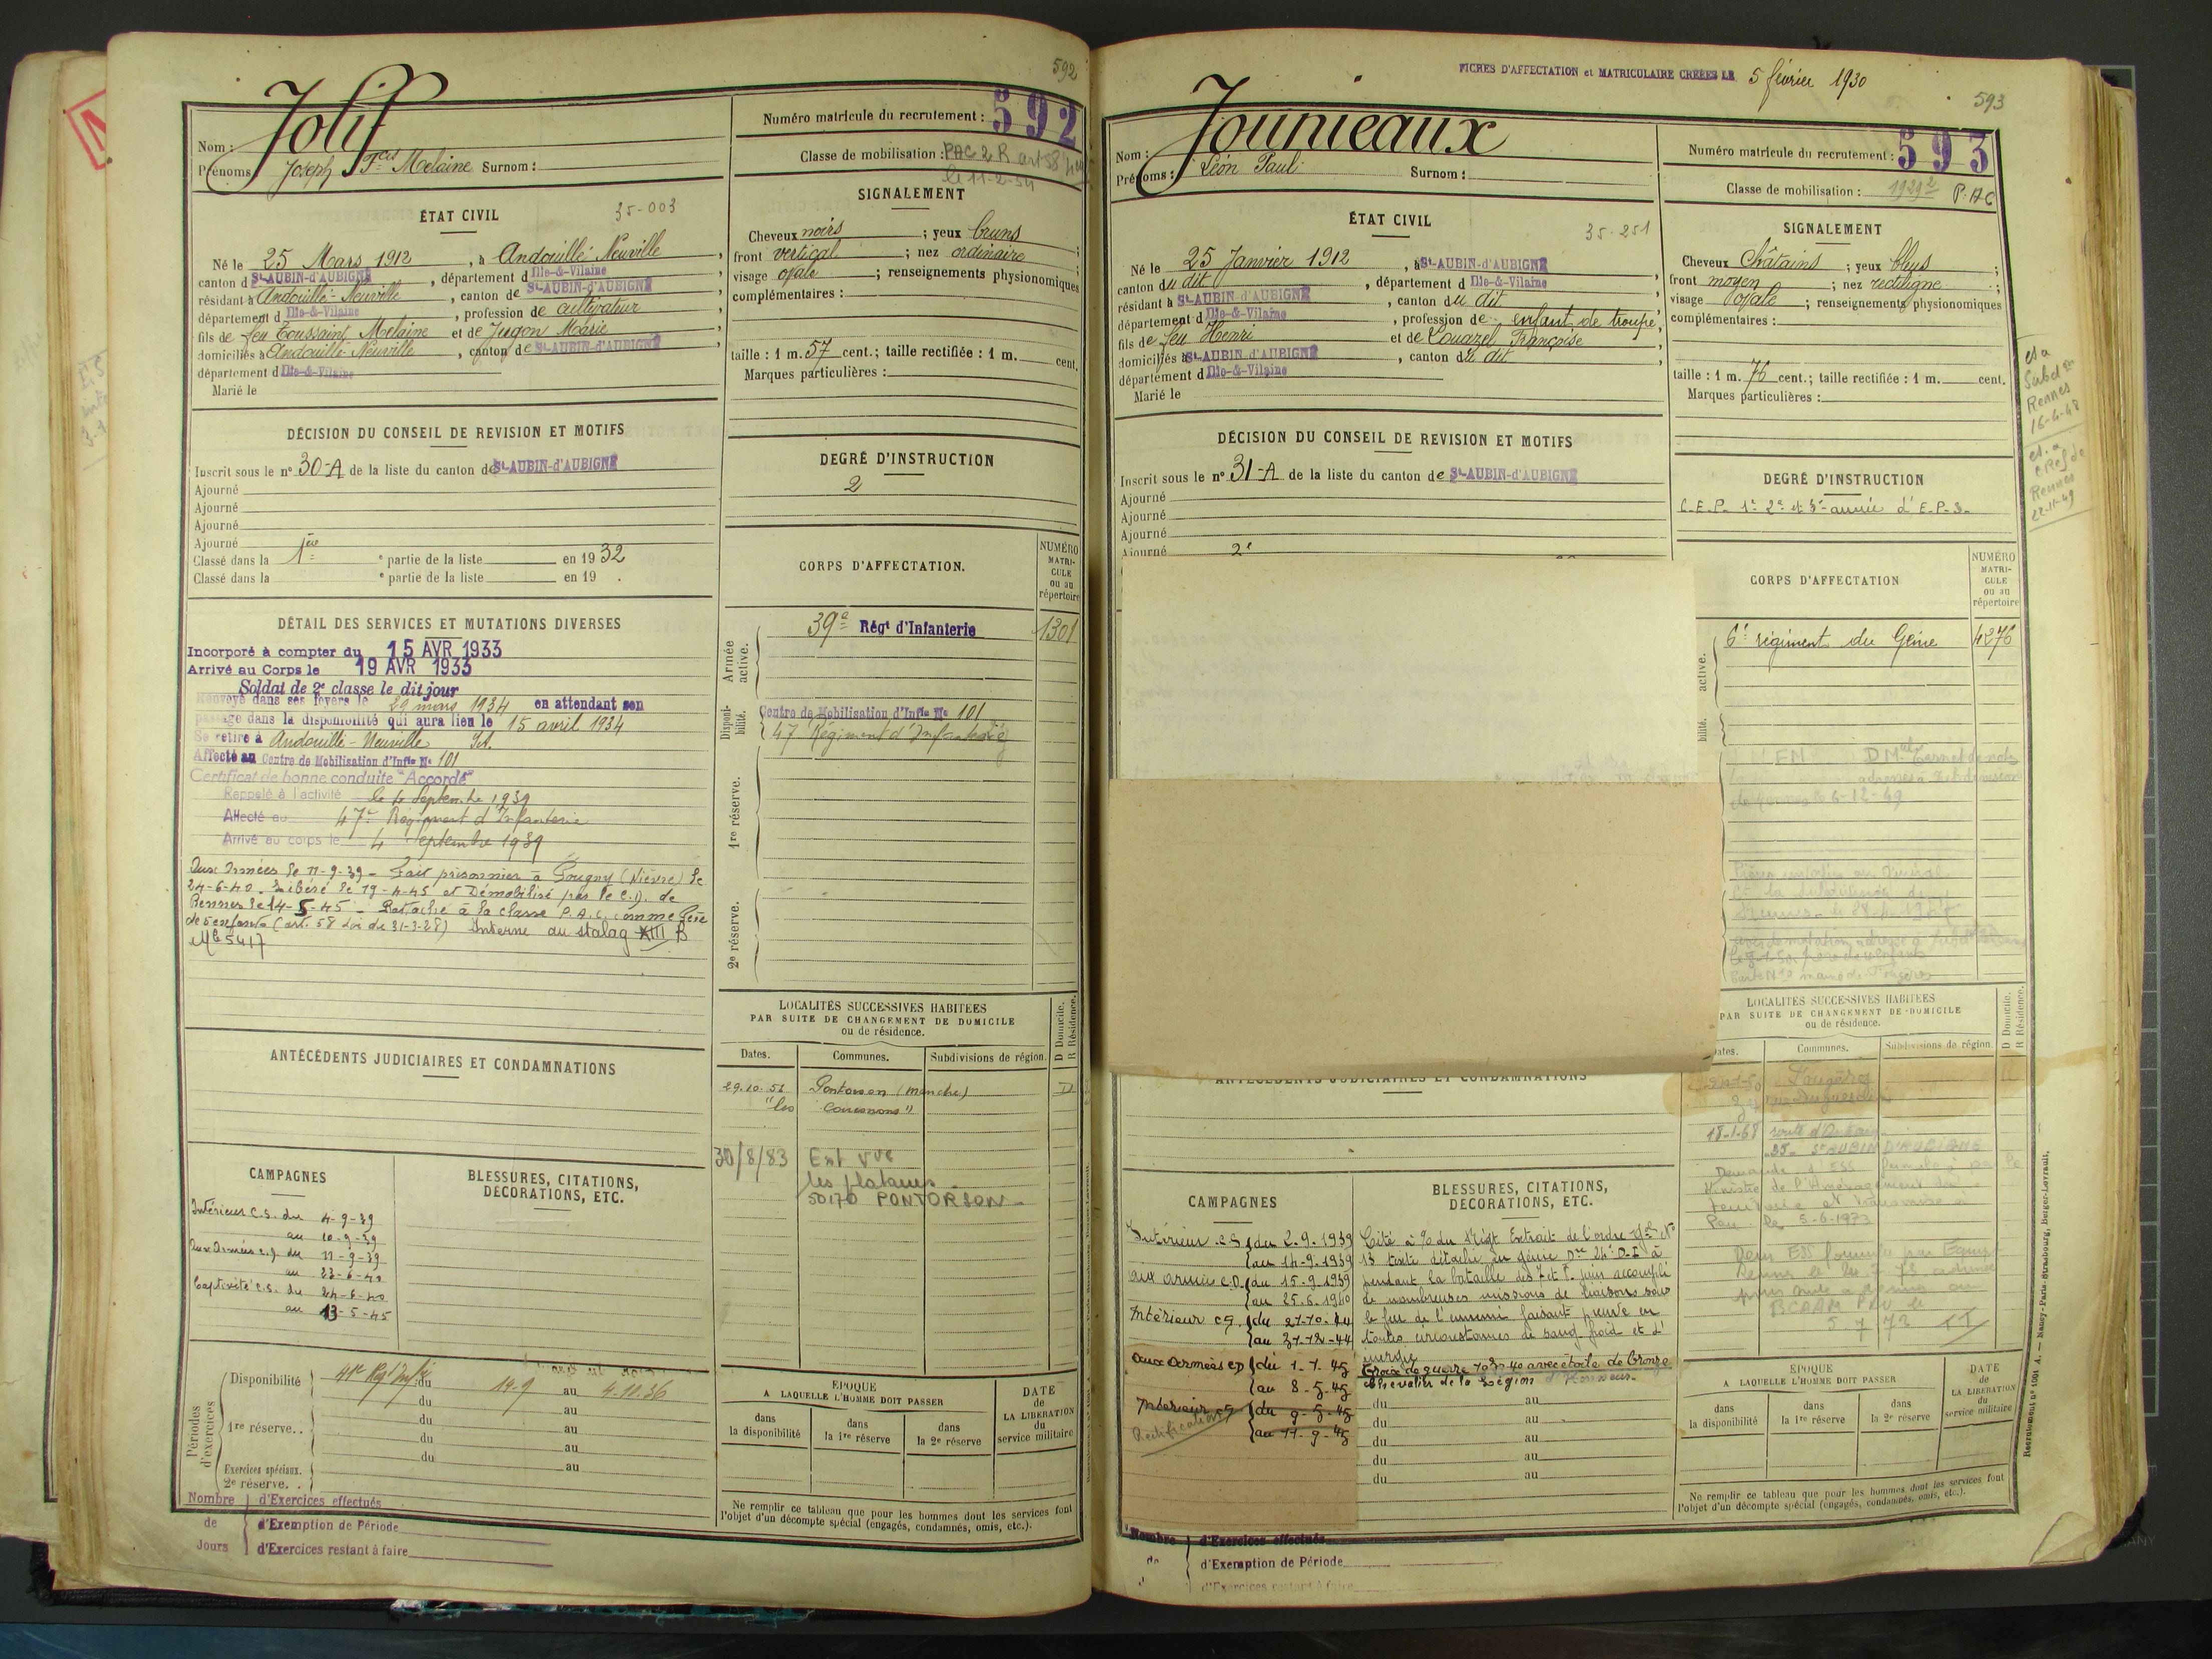 592
Jolif
Nom :
Prénoms Joseph Fcis Melaine Surnom :
Numéro matricule du recrutement : 592
Classe de mobilisation : PAC 2 R art 58
le 11-2-54
ÉTAT CIVIL
35-003
Né le 25 Mars 1912, à Andouillé Neuville,
canton d St-AUBIN-d'AUBIGNÉ, département d Ille-&-Vilaine,
résidant à Andouillé-Neuville, canton de St-AUBIN-d'AUBIGNÉ,
département d Ille-&-Vilaine, profession de cultivateur,
fils de feu Toussaint Melaine et de Jugon Marie,
domiciliés à Andouillé-Neuville, canton de St-AUBIN-d'AUBIGNÉ,
département d Ille-&-Vilaine
Marié le
SIGNALEMENT
Cheveux noirs ; yeux bruns ;
front vertical ; nez ordinaire ;
visage ovale ; renseignements physionomiques
complémentaires :
taille : 1 m. 57 cent.; taille rectifiée : 1 m. cent.
Marques particulières :
DÉCISION DU CONSEIL DE REVISION ET MOTIFS
Inscrit sous le n° 30-A de la liste du canton de St-AUBIN-d'AUBIGNÉ
Ajourné
Ajourné
Ajourné
Ajourné
Classé dans la 1ère e partie de la liste en 1932
Classé dans la e partie de la liste en 19 .
DEGRÉ D'INSTRUCTION
2
DÉTAIL DES SERVICES ET MUTATIONS DIVERSES
Incorporé à compter du 15 AVR 1933
Arrivé au Corps le 19 AVR 1933
Soldat de 2e classe le dit jour
Renvoyé dans ses foyers le 29 mars 1934 en attendant son
passage dans la disponibilité qui aura lieu le 15 avril 1934
Se retire à Andouillé-Neuville
Affecté au Centre de Mobilisation d'Infie No 101
Certificat de bonne conduite "Accordé"
Rappelé à l'activité le 4 Septembre 1939
Affecté au 47e Régiment d'Infanterie
Arrivé au corps le 4 Septembre 1939
Aux Armées le 11-9-39 - Fait prisonnier à Pougny (Nièvre) le
24-6-40. Libéré le 19-4-45 et Démobilisé par le C.D. de
Rennes le 14-5-45 - Rattaché à la classe P.A.C. comme Père
de 5 enfants (art. 58 Loi du 31-3-28) Interné au stalag XIII B
Mle 5417
CORPS D'AFFECTATION.
NUMÉRO MATRI- CULE ou au répertoire
Armée active.
39e Régt d'Infanterie 1301
Disponi- bilité.
Centre de Mobilisation d'Infie No 101
47 Régiment d'Infanterie
1re réserve.
2e réserve.
ANTÉCÉDENTS JUDICIAIRES ET CONDAMNATIONS
LOCALITÉS SUCCESSIVES HABITÉES
PAR SUITE DE CHANGEMENT DE DOMICILE
ou de résidence.
D Domicile. R Résidence.
Dates. Communes. Subdivisions de région.
29.10.51 Pontorson (Manche) D
"les Courssons"
30/8/83 Ent VVE
les platanes
50170 PONTORSON
CAMPAGNES
Intérieur C.S. du 4-9-39
au 10-9-39
Aux Armées C.D. du 11-9-39
au 23-6-40
Captivité C.S. du 24-6-40
au 13-5-45
BLESSURES, CITATIONS,
DÉCORATIONS, ETC.
Périodes d'exercices
Disponibilité 41e Rgt Infie du 19.9 au 4.10.36
1re réserve..
du au
Exercices spéciaux.
2e réserve. .
Nombre de Jours
d'Exercices effectués
d'Exemption de Période
d'Exercices restant à faire
ÉPOQUE
A LAQUELLE L'HOMME DOIT PASSER
dans la disponibilité
dans la 1re réserve
dans la 2e réserve
DATE de LA LIBÉRATION du service militaire
Ne remplir ce tableau que pour les hommes dont les services font
l'objet d'un décompte spécial (engagés, condamnés, omis, etc.).
FICHES D'AFFECTATION et MATRICULAIRE CRÉÉES LE 5 février 1930
593
Jouneaux
Nom :
Prénoms : Léon Paul Surnom :
Numéro matricule du recrutement : 593
Classe de mobilisation : 1929 2 P.AC
ÉTAT CIVIL
35-251
Né le 25 Janvier 1912, à St-AUBIN-d'AUBIGNÉ
canton du dit, département d Ille-&-Vilaine,
résidant à St-AUBIN-d'AUBIGNÉ, canton du dit,
département d Ille-&-Vilaine, profession de enfant de troupe,
fils de feu Henri et de Louazel Françoise,
domiciliés à St-AUBIN-d'AUBIGNÉ, canton du dit,
département d Ille-&-Vilaine
Marié le
SIGNALEMENT
Cheveux Châtains ; yeux bleus ;
front moyen ; nez rectiligne ;
visage ovale ; renseignements physionomiques
complémentaires :
taille : 1 m. 76 cent.; taille rectifiée : 1 m. cent.
Marques particulières :
Rennes
16-4-48
Rennes
22-11-49
DÉCISION DU CONSEIL DE REVISION ET MOTIFS
Inscrit sous le n° 31-A de la liste du canton de St-AUBIN-d'AUBIGNÉ
Ajourné
Ajourné
Ajourné
Ajourné 2e
DEGRÉ D'INSTRUCTION
C.E.P. 1e 2e et 3e année d'E.P.S.
CORPS D'AFFECTATION
NUMÉRO MATRI- CULE ou au répertoire
active.
6e régiment du Génie 4276
bilité.
6-12-49
ANTÉCÉDENTS JUDICIAIRES ET CONDAMNATIONS
LOCALITÉS SUCCESSIVES HABITÉES
PAR SUITE DE CHANGEMENT DE DOMICILE
ou de résidence.
D Domicile. R Résidence.
Dates. Communes. Subdivisions de région.
Fougères
18-1-68 route d'
35 - St AUBIN D'AUBIGNE
Demande d'ESS
Ministre de l'Aménagement du
Pau le 5-6-1973
CAMPAGNES
Intérieur C.S. du 2.9.1939
au 14-9-1939
aux armées C.D. du 15.9.1939
au 25.6.1940
Intérieur CS. du 27-10-44
au 31-12-44
aux Armées CD du 1-1-45
au 8-5-45
Intérieur CS du 9-5-45
au 11-9-45
Rectification
BLESSURES, CITATIONS,
DÉCORATIONS, ETC.
Cité à l'o du Régt Extrait de l'ordre Rgal No
13
pendant la bataille des 7 et 8 juin accompli
de nombreuses missions de liaisons sous
le feu de l'ennemi faisant preuve en
toutes circonstances de sang froid et d'
énergie
Croix de guerre 1939-40 avec étoile de bronze
Chevalier de la Légion d'Honneur.
du au
du au
du au
du au
du au
ÉPOQUE
A LAQUELLE L'HOMME DOIT PASSER
dans la disponibilité
dans la 1re réserve
dans la 2e réserve
DATE de LA LIBÉRATION du service militaire
Ne remplir ce tableau que pour les hommes dont les services font
l'objet d'un décompte spécial (engagés, condamnés, omis, etc.).
Nombre de
d'Exercices effectués
d'Exemption de Période
d'Exercices restant à faire
Recrutement N° 1001 A. — Nancy-Paris-Strasbourg, Berger-Levrault.